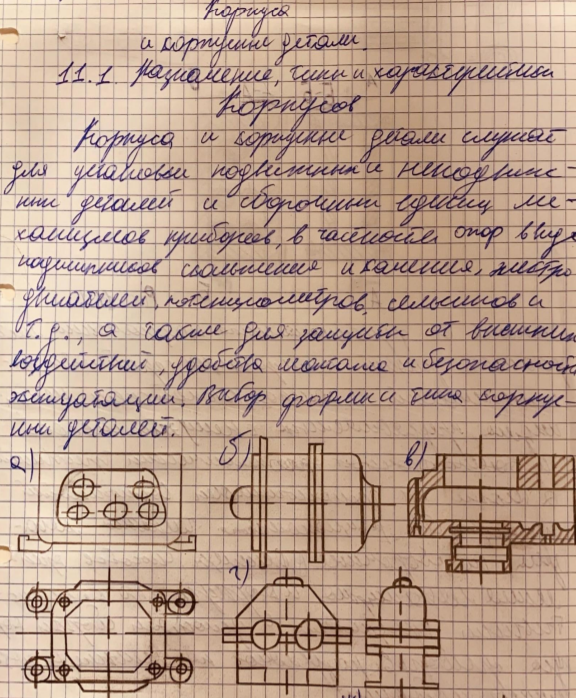 Корпуса
и корпусные детали.
11.1. Назначение, типы и характеристики
Корпусов
Корпуса и корпусные детали служат
для установки подвижных и неподвиж-
ных деталей и сборочных единиц ме-
ханизмов приборов, в частности опор в виде
подшипников скольжения и качения, электро
двигателей, потенциометров, сельсинов и
т.д., а также для защиты от внешних
воздействий, удобства монтажа и безопасности
эксплуатации. Выбор формы и типа корпус-
ных деталей.
а) б) в)
г)